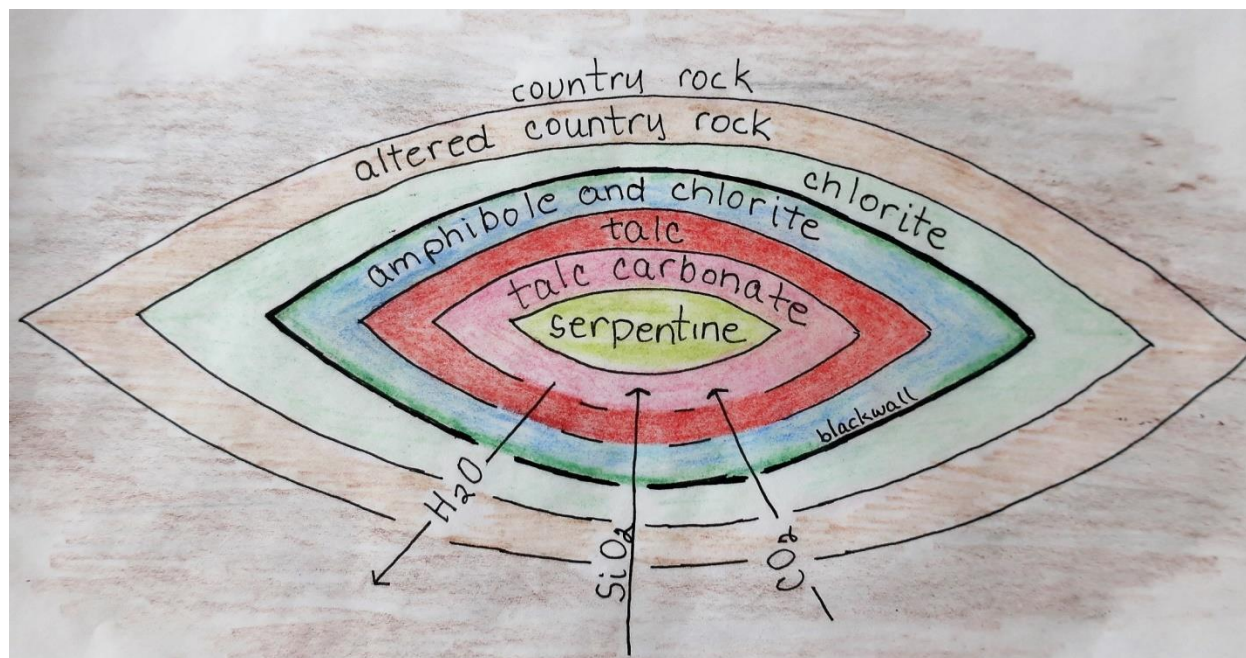 country rock
altered country rock
chlorite
amphibole and chlorite
talc
talc carbonate
serpentine
blackwall
H₂O
SiO₂
CO₂